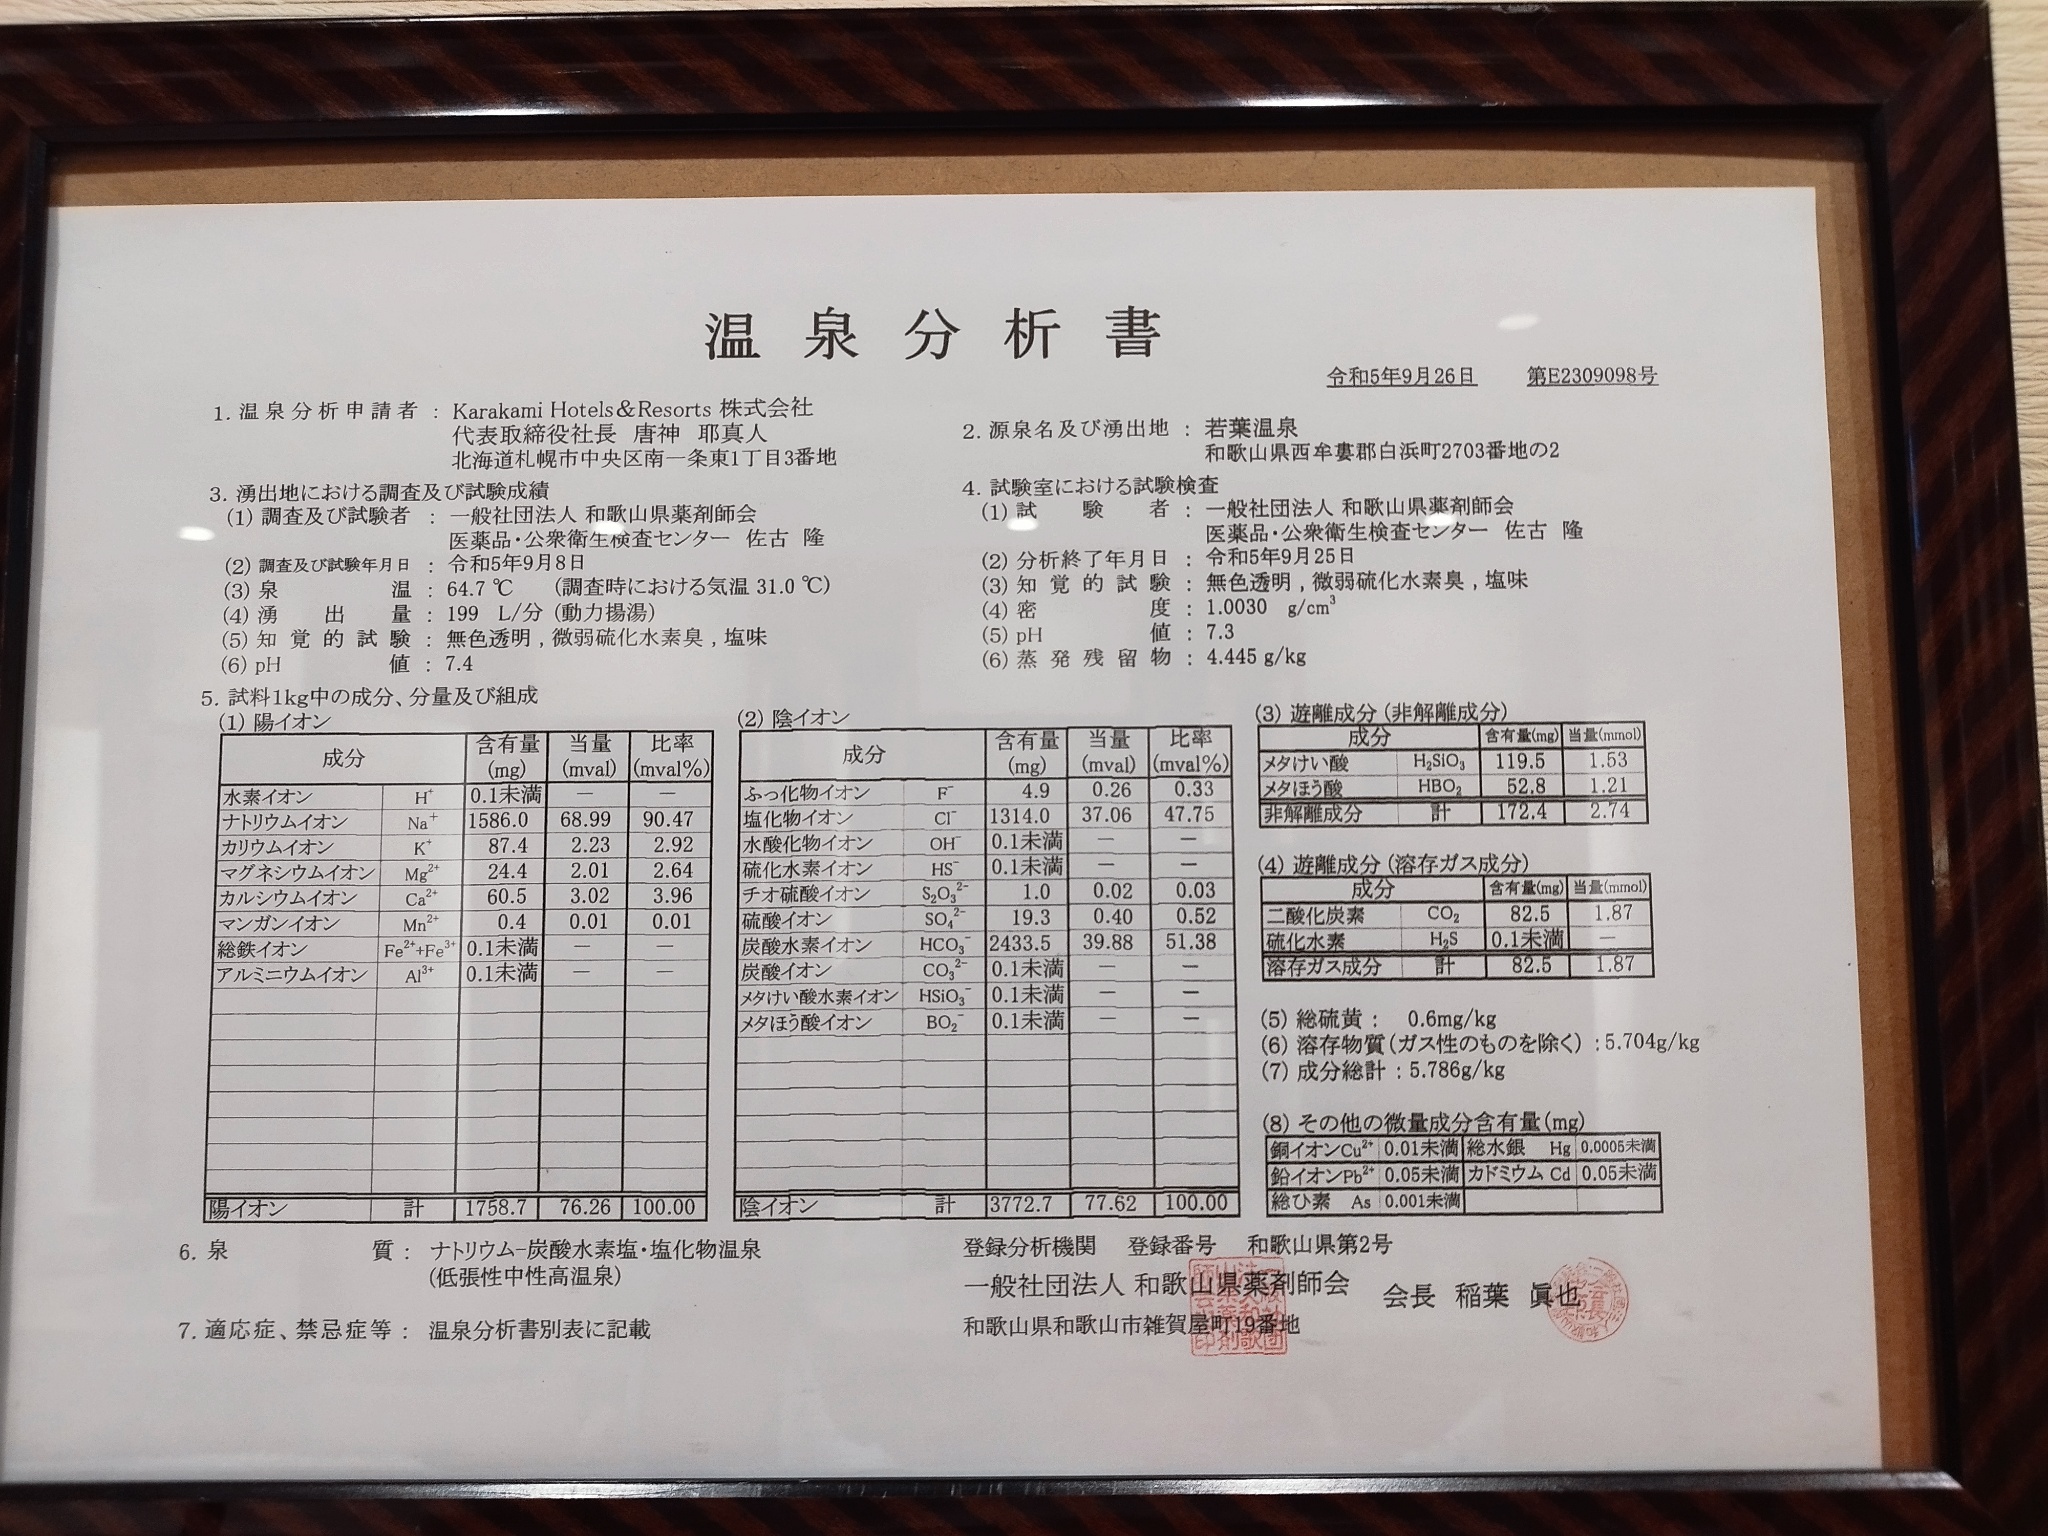 温泉分析書
令和5年9月26日 第E2309098号
1. 温泉分析申請者 : Karakami Hotels&Resorts 株式会社
代表取締役社長 唐神 耶真人
北海道札幌市中央区南一条東1丁目3番地
2. 源泉名及び湧出地 : 若葉温泉
和歌山県西牟婁郡白浜町2703番地の2
3. 湧出地における調査及び試験成績
(1) 調査及び試験者 : 一般社団法人 和歌山県薬剤師会
医薬品・公衆衛生検査センター 佐古 隆
(2) 調査及び試験年月日 : 令和5年9月8日
(3) 泉温 : 64.7 ℃ (調査時における気温 31.0 ℃)
(4) 湧出量 : 199 L/分 (動力揚湯)
(5) 知覚的試験 : 無色透明 , 微弱硫化水素臭 , 塩味
(6) pH値 : 7.4
4. 試験室における試験検査
(1) 試験者 : 一般社団法人 和歌山県薬剤師会
医薬品・公衆衛生検査センター 佐古 隆
(2) 分析終了年月日 : 令和5年9月25日
(3) 知覚的試験 : 無色透明 , 微弱硫化水素臭 , 塩味
(4) 密度 : 1.0030 g/cm³
(5) pH値 : 7.3
(6) 蒸発残留物 : 4.445 g/kg
5. 試料1kg中の成分、分量及び組成
(1) 陽イオン
成分 含有量(mg) 当量(mval) 比率(mval%)
水素イオン H⁺ 0.1未満 — —
ナトリウムイオン Na⁺ 1586.0 68.99 90.47
カリウムイオン K⁺ 87.4 2.23 2.92
マグネシウムイオン Mg²⁺ 24.4 2.01 2.64
カルシウムイオン Ca²⁺ 60.5 3.02 3.96
マンガンイオン Mn²⁺ 0.4 0.01 0.01
総鉄イオン Fe²⁺+Fe³⁺ 0.1未満 — —
アルミニウムイオン Al³⁺ 0.1未満 — —
陽イオン 計 1758.7 76.26 100.00
(2) 陰イオン
成分 含有量(mg) 当量(mval) 比率(mval%)
ふっ化物イオン F⁻ 4.9 0.26 0.33
塩化物イオン Cl⁻ 1314.0 37.06 47.75
水酸化物イオン OH⁻ 0.1未満 — —
硫化水素イオン HS⁻ 0.1未満 — —
チオ硫酸イオン S₂O₃²⁻ 1.0 0.02 0.03
硫酸イオン SO₄²⁻ 19.3 0.40 0.52
炭酸水素イオン HCO₃⁻ 2433.5 39.88 51.38
炭酸イオン CO₃²⁻ 0.1未満 — —
メタけい酸水素イオン HSiO₃⁻ 0.1未満 — —
メタほう酸イオン BO₂⁻ 0.1未満 — —
陰イオン 計 3772.7 77.62 100.00
(3) 遊離成分 (非解離成分)
成分 含有量(mg) 当量(mmol)
メタけい酸 H₂SiO₃ 119.5 1.53
メタほう酸 HBO₂ 52.8 1.21
非解離成分 計 172.4 2.74
(4) 遊離成分 (溶存ガス成分)
成分 含有量(mg) 当量(mmol)
二酸化炭素 CO₂ 82.5 1.87
硫化水素 H₂S 0.1未満 —
溶存ガス成分 計 82.5 1.87
(5) 総硫黄 : 0.6mg/kg
(6) 溶存物質 (ガス性のものを除く) : 5.704g/kg
(7) 成分総計 : 5.786g/kg
(8) その他の微量成分含有量(mg)
銅イオンCu²⁺ 0.01未満 総水銀 Hg 0.0005未満
鉛イオンPb²⁺ 0.05未満 カドミウム Cd 0.05未満
総ひ素 As 0.001未満
6. 泉質 : ナトリウム-炭酸水素塩・塩化物温泉
(低張性中性高温泉)
7. 適応症、禁忌症等 : 温泉分析書別表に記載
登録分析機関 登録番号 和歌山県第2号
一般社団法人 和歌山県薬剤師会 会長 稲葉 眞也
和歌山県和歌山市雑賀屋町19番地